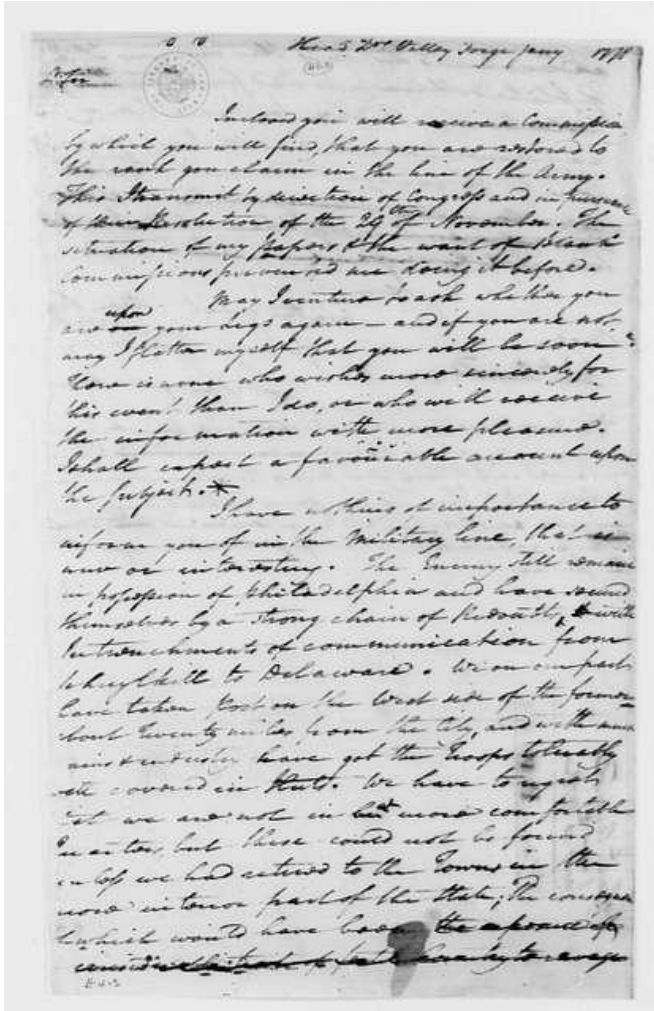 Head Qrs Valley Forge Jany 1778
Sir
Inclosed you will receive a Commission
by which you will find, that you are restored to
the rank you claim in the line of the Army.
This I transmit by direction of Congress and in pursuance
of their Resolution of the 29th of November. The
situation of my papers & the want of Blank
Commissions prevented me doing it before.
May I venture to ask whether you
are on upon your legs again – and if you are not
may I flatter myself that you will be soon
There is none who wishes more sincerely for
this event than I do, or who will receive
the information with more pleasure.
I shall expect a favourable account upon
the subject. *
I have nothing of importance to
inform you of in the military line, that is
new or interesting. The Enemy still remain
in possession of Philadelphia and have secured
themselves by a strong chain of Redoubts, with
Intrenchments of communication from
Schuylkill to Delaware. We on our part
have taken post on the West side of the former
about Twenty miles from the City, and with much
pains & industry have got the Troops tolerably
well covered in Huts. We have to regret
that we are not in more comfortable
Quarters, but these could not be found
unless we had retired to the Towns in the
more interior part of the State; The consequence
of which would have been the exposure of
to ravage